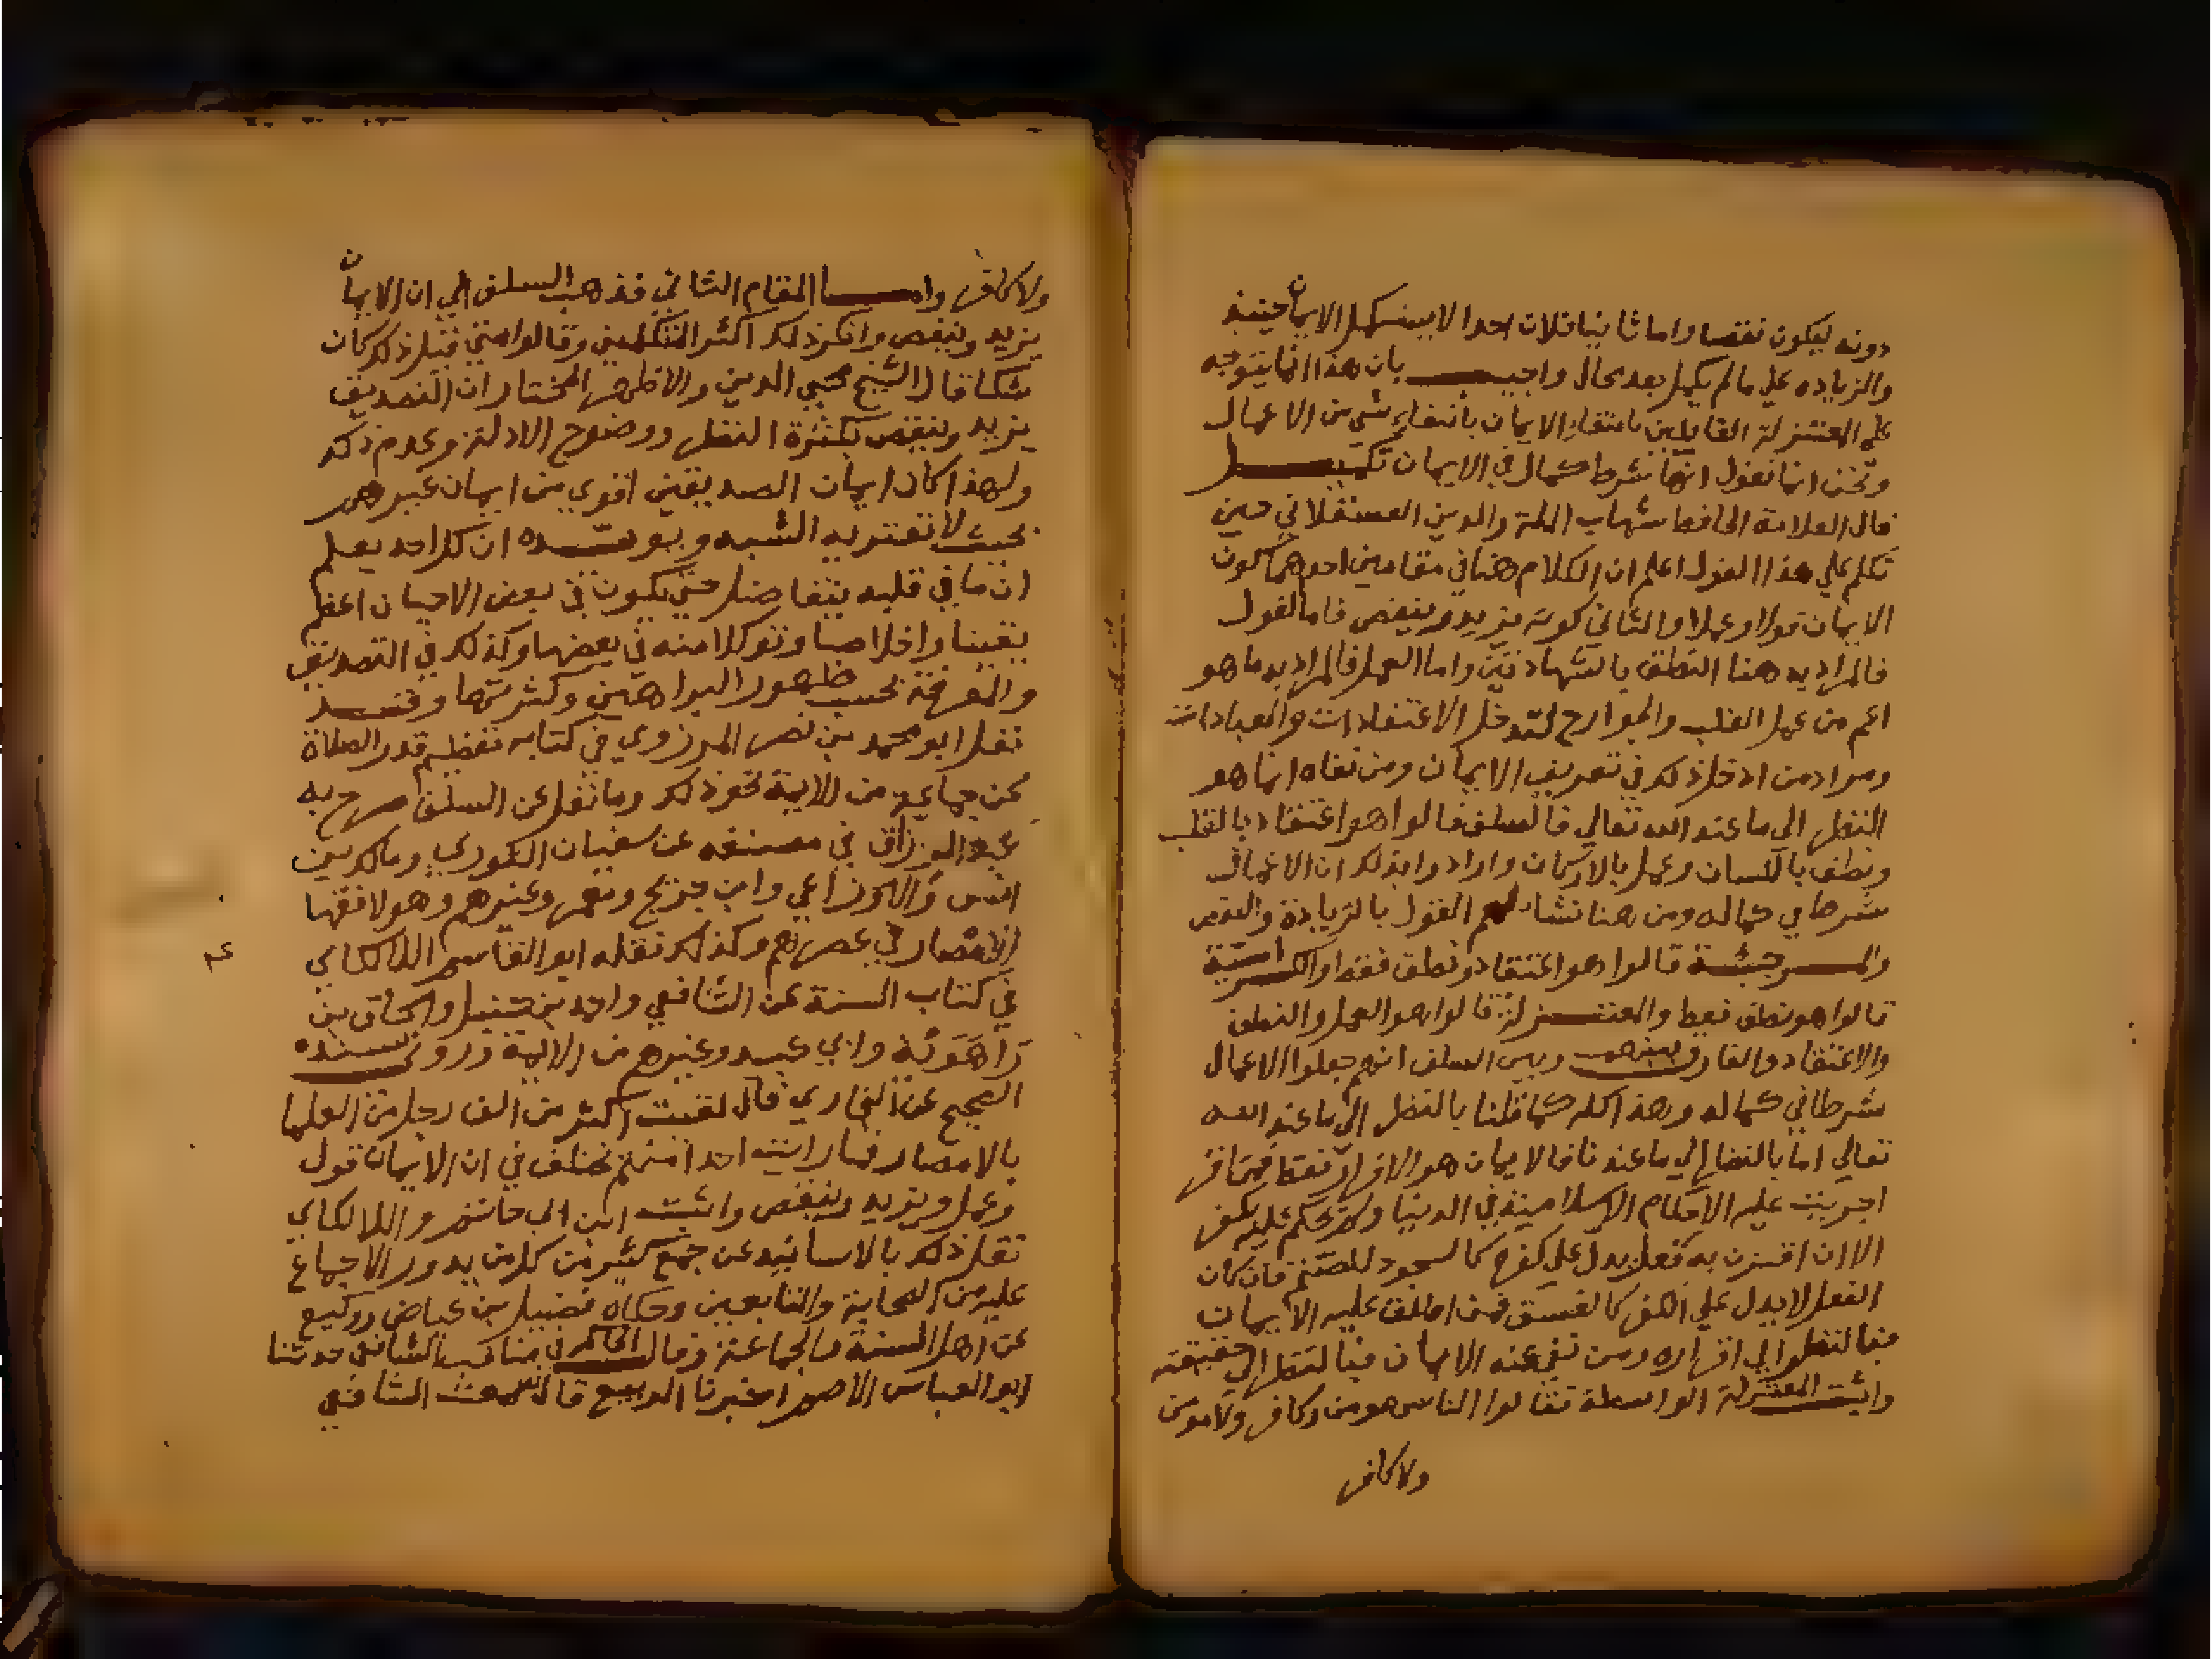 دونه ليكون نقصا واما ثانيا فلان احدا لا يستكمل الايمان حينيذ
والزياده علي ما لم يكمل بعد محال واجيب بان هذا انما يتوجه
علي المعتزلة القايلين بانتفاء الايمان بانتفاء شي من الاعمال
ونحن انما نقول انها شرط كمال في الايمان تكميل
قال العلامة الحافظ شهاب الملة والدين العسقلاني حين
تكلم علي هذا القول اعلم ان الكلام هنا في مقامين احدهما كون
الايمان قولا وعملا والثاني كونه يزيد وينقص فاما القول
فالمراد به هنا النطق بالشهادتين واما العمل فالمراد به ما هو
اعم من عمل القلب والجوارح لتدخل الاعتقادات والعبادات
ومراد من ادخل ذلك في تعريف الايمان ومن نفاه انما هو
النظر الي ما عند الله تعالي فالسلف قالوا هو اعتقاد بالقلب
ونطق باللسان وعمل بالاركان وارادوا بذلك ان الاعمال
شرط في كماله ومن هنا نشا لهم القول بالزيادة والنقص
والمرجئة قالوا هو اعتقاد ونطق فقط والكرامية
قالوا هو نطق فقط والمعتزلة قالوا هو العمل والنطق
والاعتقاد والفارق بينهم وبين السلف انهم جعلوا الاعمال
شرطا في كماله وهذا كله كما قلنا بالنظر الي ما عند الله
تعالي اما بالنظر الي ما عندنا فالايمان هو الاقرار فقط فمن اقر
اجريت عليه الاحكام الاسلامية في الدنيا ولم يحكم عليه بكفر
الا ان اقترن به فعل يدل علي كفره كالسجود للصنم فان كان
الفعل لا يدل علي الكفر كالفسق فمن اطلق عليه الايمان
فبالنظر الي اقراره ومن نفي عنه الايمان فبالنظر الي حقيقته
واثبت المعتزلة الواسطة فقالوا الناس مومن وكافر ولا مومن
ولا كافر
ولا كافر واما المقام الثاني فذهب السلف الي ان الايمان
يزيد وينقص وانكر ذلك اكثر المتكلمين وقالوا متي قبل ذلك كان
شكا قال الشيخ محيي الدين والاظهر المختار ان التصديق
يزيد وينقص بكثرة النظر ووضوح الادلة وعدم ذلك
ولهذا كان ايمان الصديقين اقوي من ايمان غيرهم
بحيث لا تعتريه الشبه ويويده ان كل احد يعلم
ان ما في قلبه يتفاضل حتي يكون في بعض الاحيان اعظم
يقينا واخلاصا وتوكلا منه في بعضها وكذلك في التصديق
والمعرفة بحسب ظهور البراهين وكثرتها وقد
نقل ابو محمد بن نصر المروزي في كتابه تعظيم قدر الصلاة
عن جماعة من الايمة نحو ذلك وما نقل عن السلف صرح به
عبد الرزاق في مصنفه عن سفيان الثوري ومالك بن
انس والاوزاعي وابن جريج ومعمر وغيرهم وهولا فقها
الامصار في عصرهم وكذلك نقله ابو القاسم اللالكاي
عم
في كتاب السنة عن الشافعي واحمد بن حنبل واسحاق بن
راهويه وابي عبيد وغيرهم من الايمة وروي بسنده
الصحيح عن البخاري قال لقيت اكثر من الف رجل من العلما
بالامصار فما رايت احدا منهم يختلف في ان الايمان قول
وعمل ويزيد وينقص واثبت ابن ابي حاتم واللالكاي
نقل ذلك بالاسانيد عن جمع كثير من كل من يدور الاجماع
عليه من الصحابة والتابعين وحكاه فضيل بن عياض ووكيع
عن اهل السنة والجماعة وقال الحاكم في مناقب الشافعي حدثنا
ابو العباس الاصم اخبرنا الربيع قال سمعت الشافعي